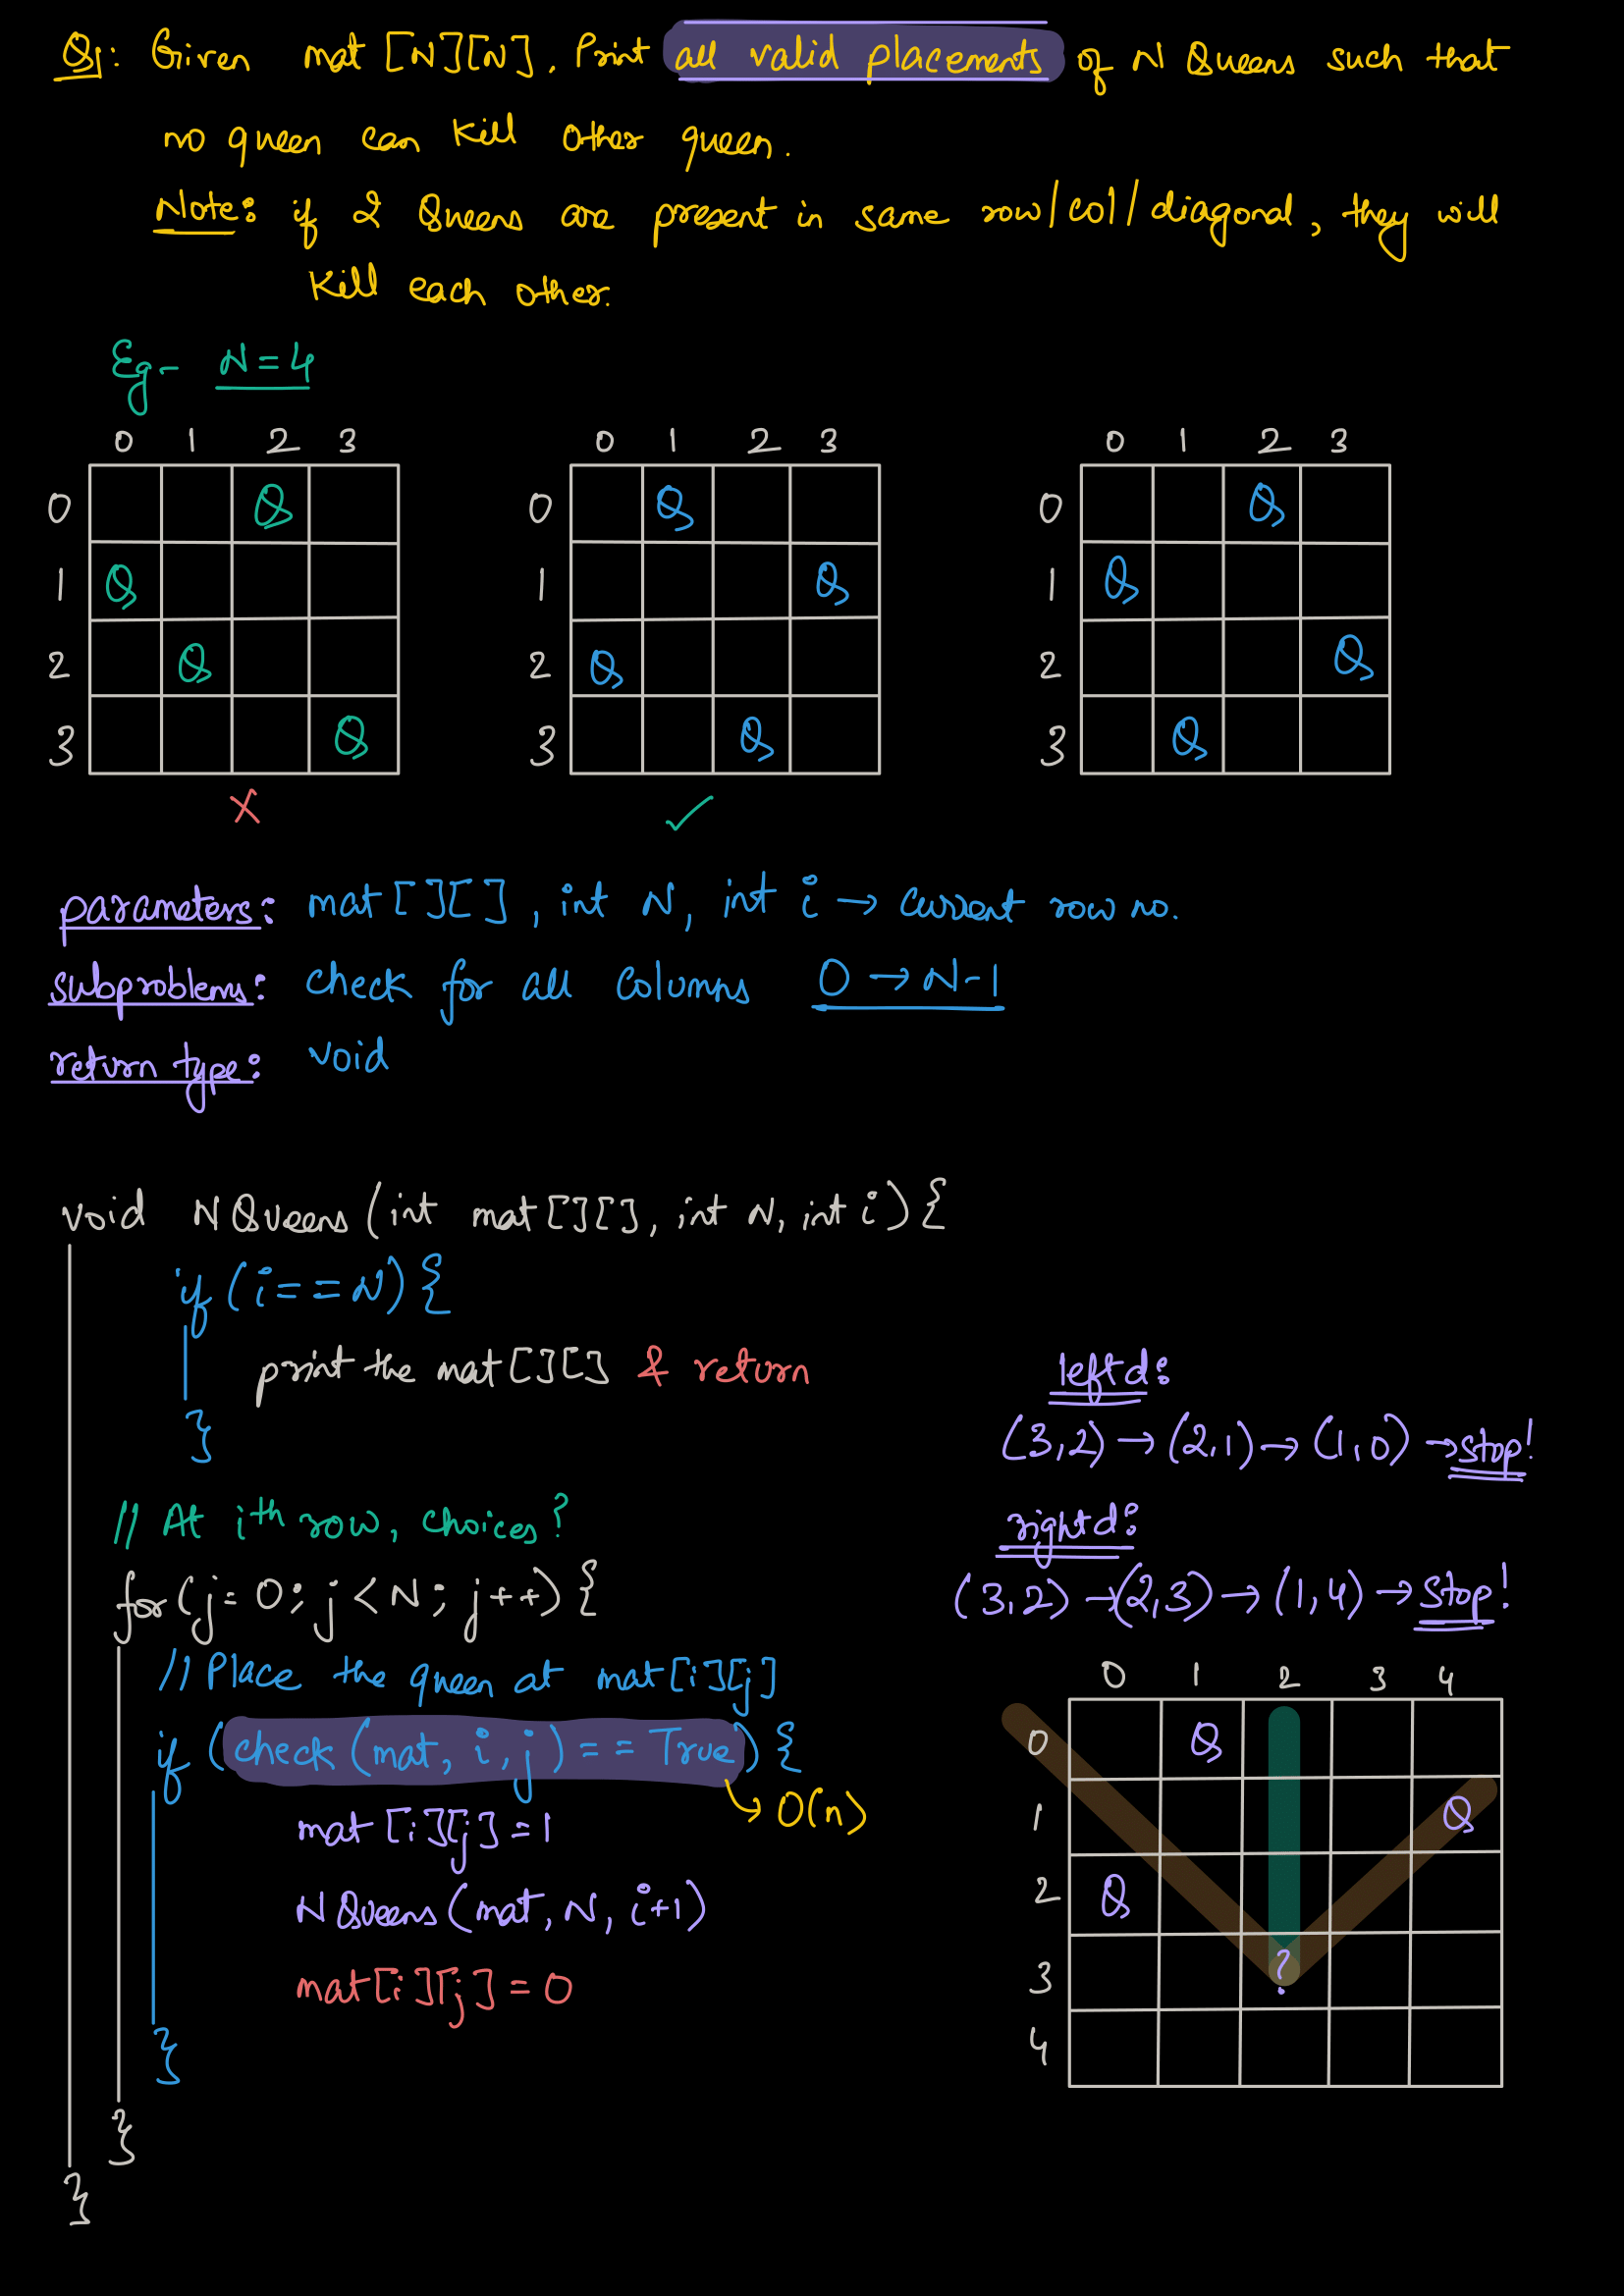 Q: Given mat [N][N], Print all valid placements of N Queens such that
no queen can kill other queen.
Note: if 2 Queens are present in same row/col/diagonal, they will
kill each other.
Eg- N=4
0 1 2 3 0 1 2 3 0 1 2 3
0 Q 0 Q 0 Q
1 Q 1 Q 1 Q
2 Q 2 Q 2 Q
3 Q 3 Q 3 Q
✗ ✓
parameters: mat[][], int N, int i → current row no.
subproblems: check for all columns 0 → N-1
return type: void
void NQueens(int mat[][], int N, int i){
if (i==N){
print the mat[][] & return
}
// At ith row, choices?
for(j=0; j<N; j++){
// Place the queen at mat[i][j]
if (check(mat, i, j) == True){
→ O(n)
mat[i][j]=1
NQueens(mat, N, i+1)
mat[i][j]=0
}
}
}
left d:
(3,2)→(2,1)→(1,0)→stop!
right d:
(3,2)→(2,3)→(1,4)→stop!
0 1 2 3 4
0 Q
1 Q
2 Q
3 ?
4